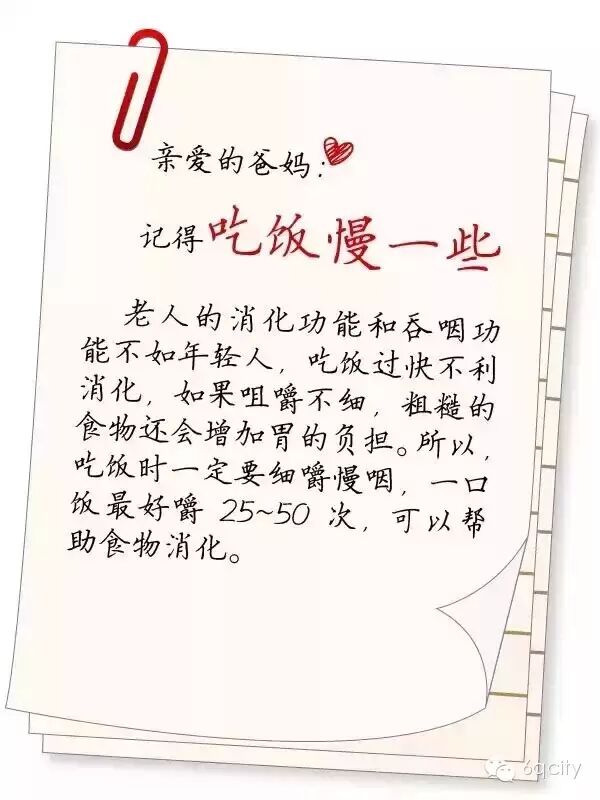 亲爱的爸妈：
记得吃饭慢一些
老人的消化功能和吞咽功
能不如年轻人，吃饭过快不利
消化，如果咀嚼不细，粗糙的
食物还会增加胃的负担。所以，
吃饭时一定要细嚼慢咽，一口
饭最好嚼 25~50 次，可以帮
助食物消化。
6qcity